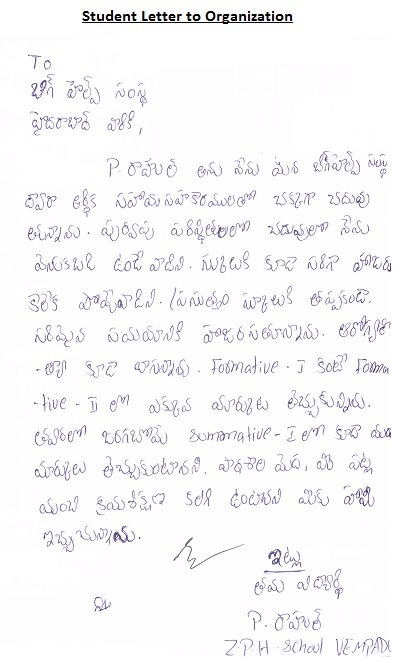 Student Letter to Organization
To
బిగ్ హెల్ప్ సంస్థ
హైదరాబాద్ వారికి,
P. రాహుల్ అను నేను మీరు బిగ్‌హెల్ప్ సంస్థ
ద్వారా ఆర్థిక సహాయ సహకారములతో చక్కగా చదువు
తున్నాను. పూర్వపు పరిస్థితులలో చదువులో నేను
వెనుకబడి ఉండే వాడిని. స్కూలుకి కూడా సరిగా హాజరు
కాలేక పోయేవాడిని. ప్రస్తుతం స్కూలుకి తప్పకుండా
సరియైన సమయానికి హాజరవుతున్నాను.
కూడా బాగున్నాను. Formative - I కంటే Forma
-tive - II లో ఎక్కువ మార్కులు తెచ్చుకున్నాను.
త్వరలో జరగబోయే Summative - I లో కూడా మంచి
మార్కులు తెచ్చుకుంటానని. పాఠశాల మీద, పట్ల
మంచి క్రమశిక్షణ కలిగి ఉంటానని మీకు హామీ
ఇచ్చుచున్నాను.
ఇట్లు
తమ విద్యార్థి
P. రాహుల్
Z.P.H. School VEMPADU